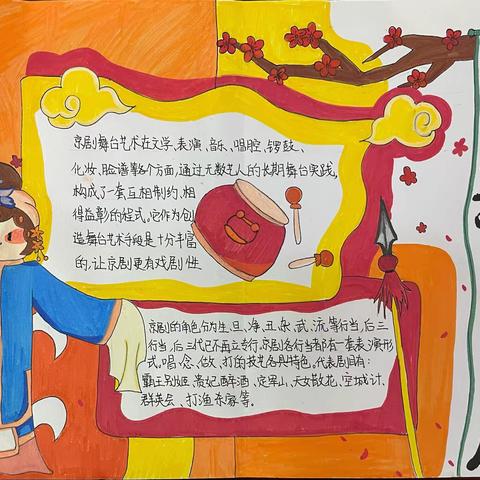 京剧舞台艺术在文学、表演、音乐、唱腔、锣鼓、
化妆、脸谱等各个方面,通过无数艺人的长期舞台实践,
构成了一套互相制约、相
得益彰的程式,它作为创
造舞台艺术手段是十分丰富
的,让京剧更有戏剧性
京剧的角色分为生、旦、净、丑、杂、武、流等行当,后三
行当,后三代已不再立专行.京剧各行当都有一套表演形
式,唱、念、做、打的技艺各具特色,代表剧目有:
霸王别姬、贵妃醉酒、定军山、天女散花、空城计、
群英会、打渔杀家等。